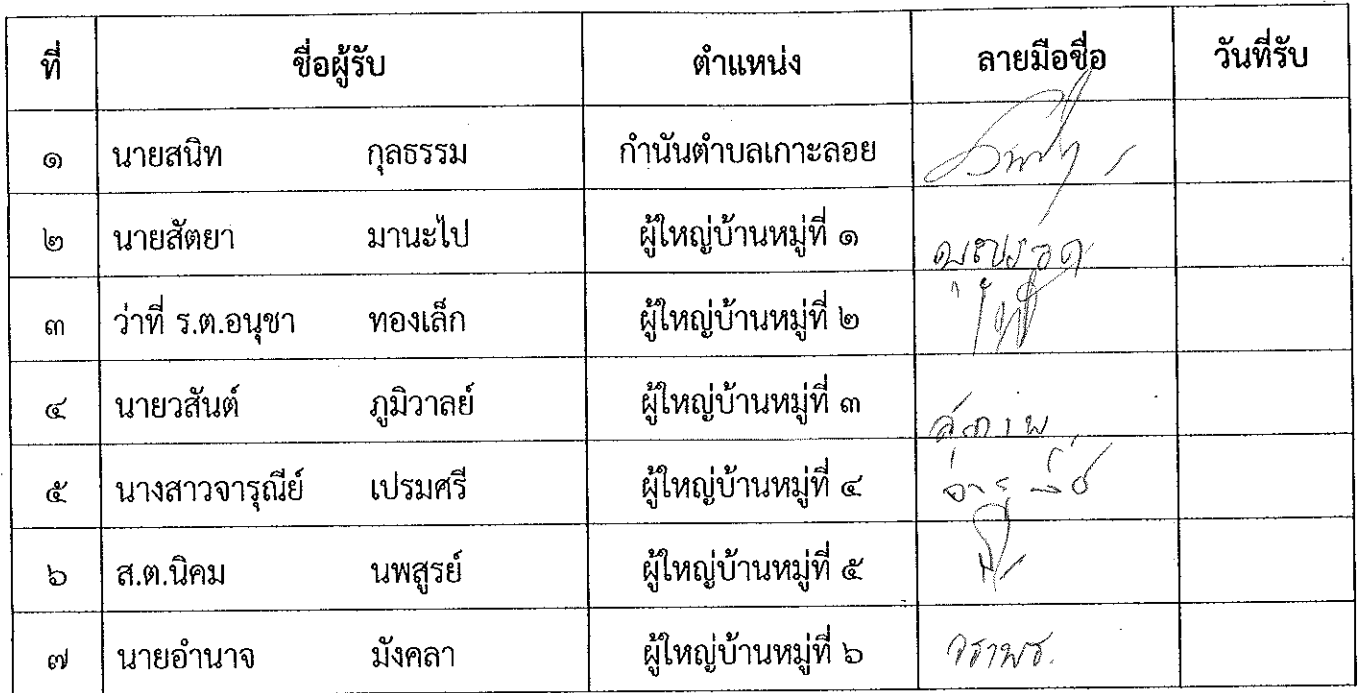 ที่ ชื่อผู้รับ ตำแหน่ง ลายมือชื่อ วันที่รับ
๑ นายสนิท กุลธรรม กำนันตำบลเกาะลอย
๒ นายสัตยา มานะไป ผู้ใหญ่บ้านหมู่ที่ ๑
๓ ว่าที่ ร.ต.อนุชา ทองเล็ก ผู้ใหญ่บ้านหมู่ที่ ๒
๔ นายวสันต์ ภูมิวาลย์ ผู้ใหญ่บ้านหมู่ที่ ๓
๕ นางสาวจารุณีย์ เปรมศรี ผู้ใหญ่บ้านหมู่ที่ ๔
๖ ส.ต.นิคม นพสูรย์ ผู้ใหญ่บ้านหมู่ที่ ๕
๗ นายอำนาจ มังคลา ผู้ใหญ่บ้านหมู่ที่ ๖ จราพร.